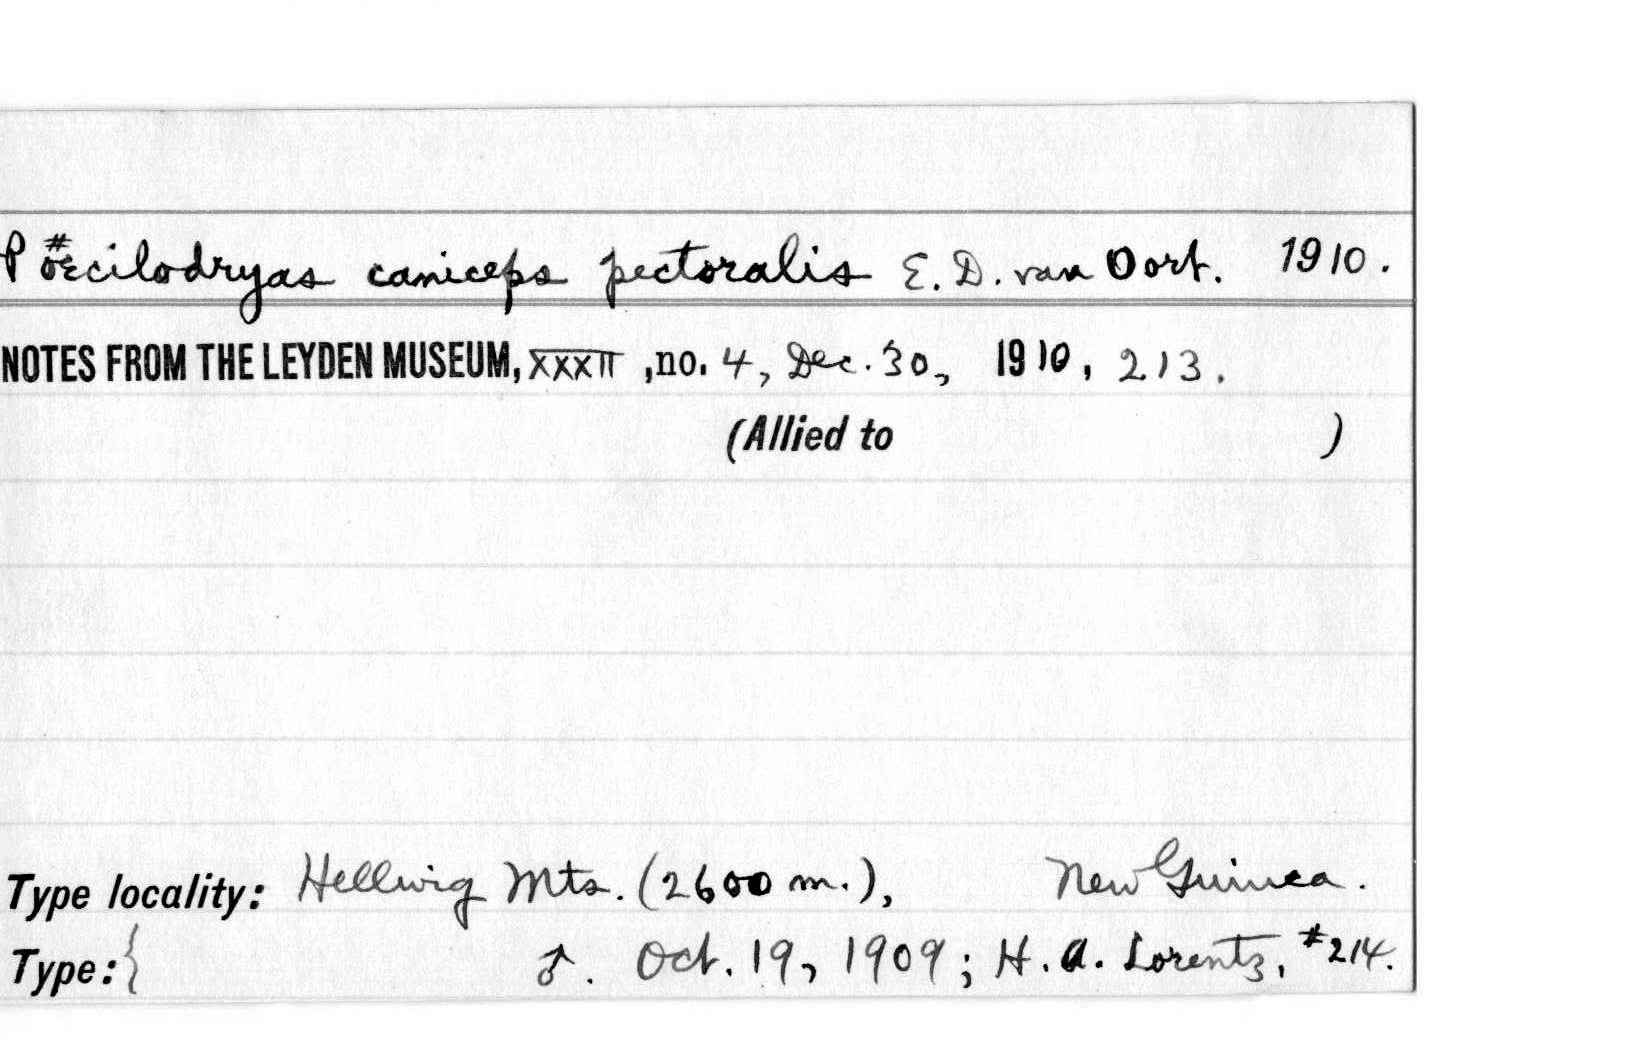 Poecilodryas caniceps pectoralis E. D. van Oort. 1910.
NOTES FROM THE LEYDEN MUSEUM, XXXII, no. 4, Dec. 30, 1910, 213.
(Allied to )
Type locality: Hellwig Mts. (2600 m.), New Guinea.
Type:{ ♂. Oct. 19, 1909; H. A. Lorentz, #214.